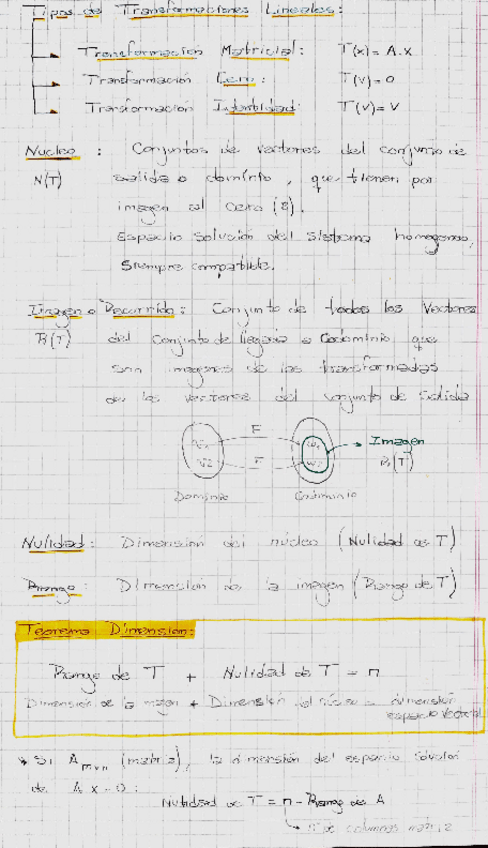 Tipos de Transformaciones Lineales:
Transformación Matricial: T(x) = A.x
Transformación Cero: T(v) = 0
Transformación Identidad: T(v) = v
Nucleo : Conjuntos de vectores del conjunto de
N(T) salida o dominio, que tienen por
imagen al cero
Espacio Solución del Sistema homogeneo,
Siempre compatible.
Imagen o Recorrido: Conjunto de todos los Vectores
R(T) del Conjunto de llegada o Codominio que
son imagenes de las transformadas
de los vectores del conjunto de Salida
F
v1 w1 Imagen
v2 F w2 R(T)
Dominio Codominio
Nulidad: Dimensión del núcleo (Nulidad de T)
Rango: Dimensión de la imagen (Rango de T)
Teorema Dimension:
Rango de T + Nulidad de T = n
Dimensión de la imagen + Dimensión del núcleo = dimensión
espacio vectorial
* Si A mxn (matriz), la dimensión del espacio solución
de Ax=0:
Nulidad de T = n - Rango de A
Nº de columnas matriz